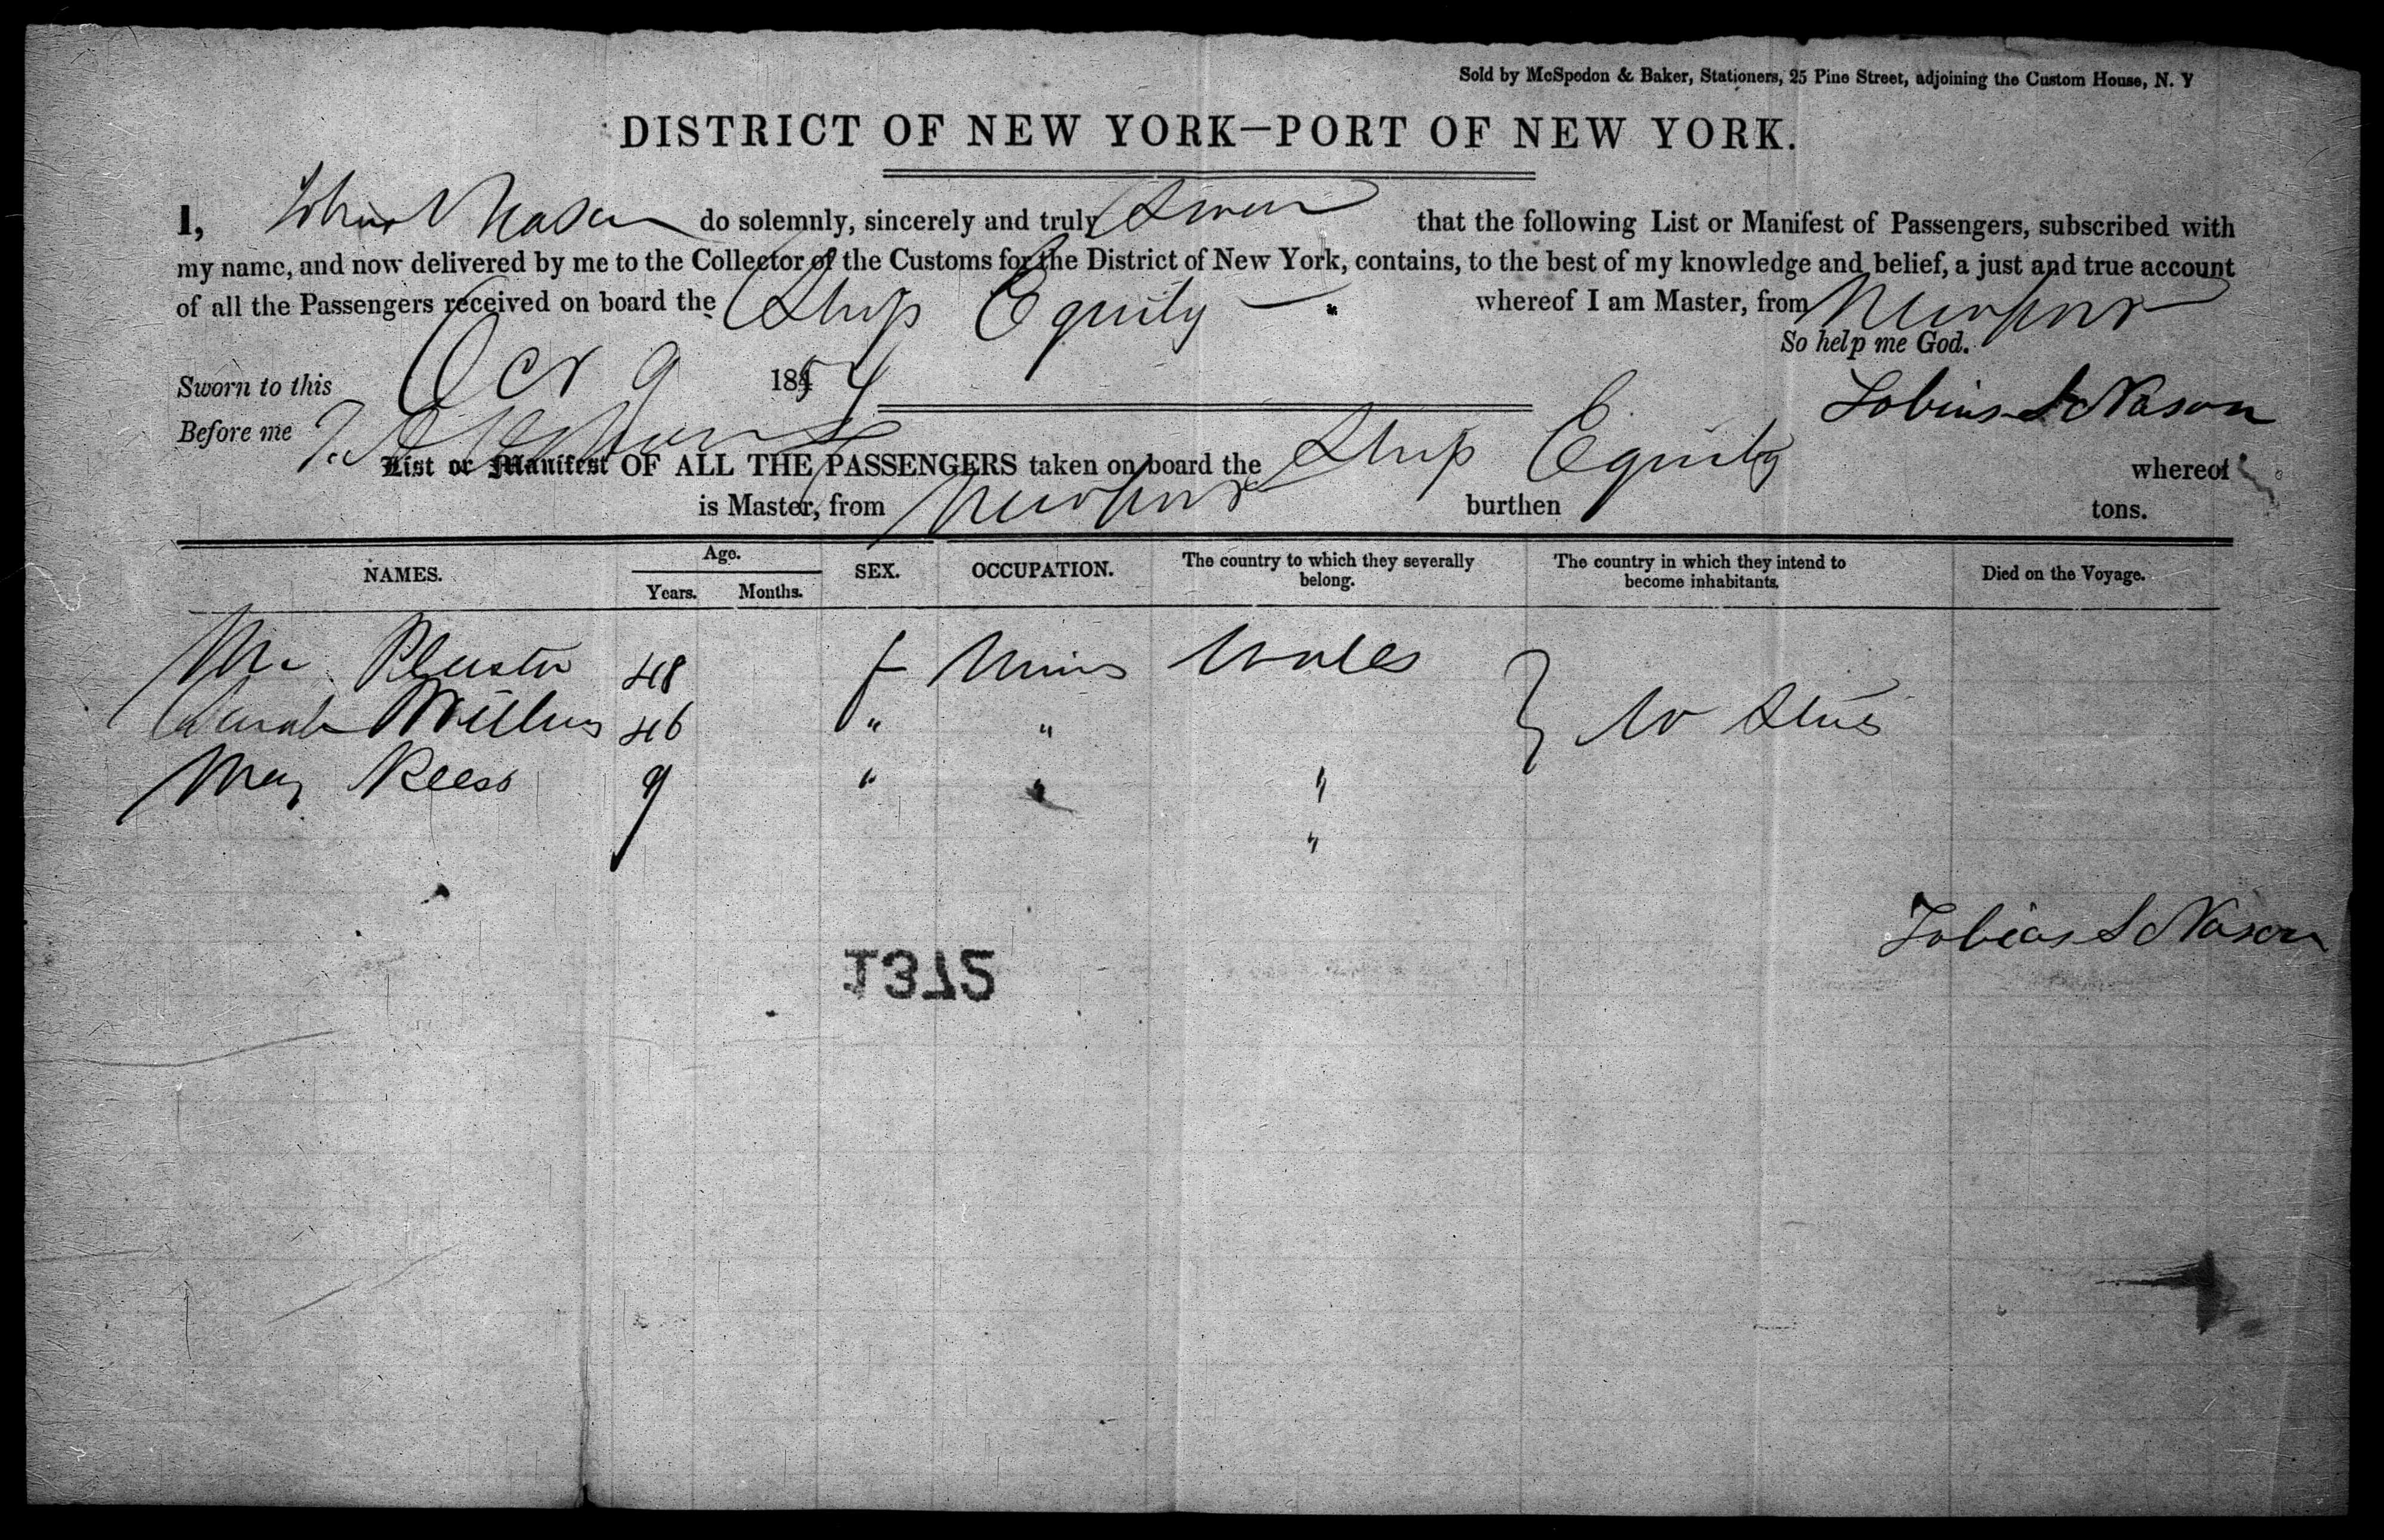 Sold by McSpedon & Baker, Stationers, 25 Pine Street, adjoining the Custom House, N. Y
DISTRICT OF NEW YORK—PORT OF NEW YORK.
I, Nason do solemnly, sincerely and truly Swear that the following List or Manifest of Passengers, subscribed with
my name, and now delivered by me to the Collector of the Customs for the District of New York, contains, to the best of my knowledge and belief, a just and true account
of all the Passengers received on board the Ship Equity whereof I am Master, from Newport
So help me God.
Sworn to this Oct 9 1854
Tobias S Nason
Before me
List or Manifest OF ALL THE PASSENGERS taken on board the Ship Equity whereof
is Master, from Newport burthen tons.
NAMES. Age. Years. Months. SEX. OCCUPATION. The country to which they severally belong. The country in which they intend to become inhabitants. Died on the Voyage.
48 f Wales
Sarah 46 " " U States
Mary Reess 9 " " "
"
Tobias S Nason
1372